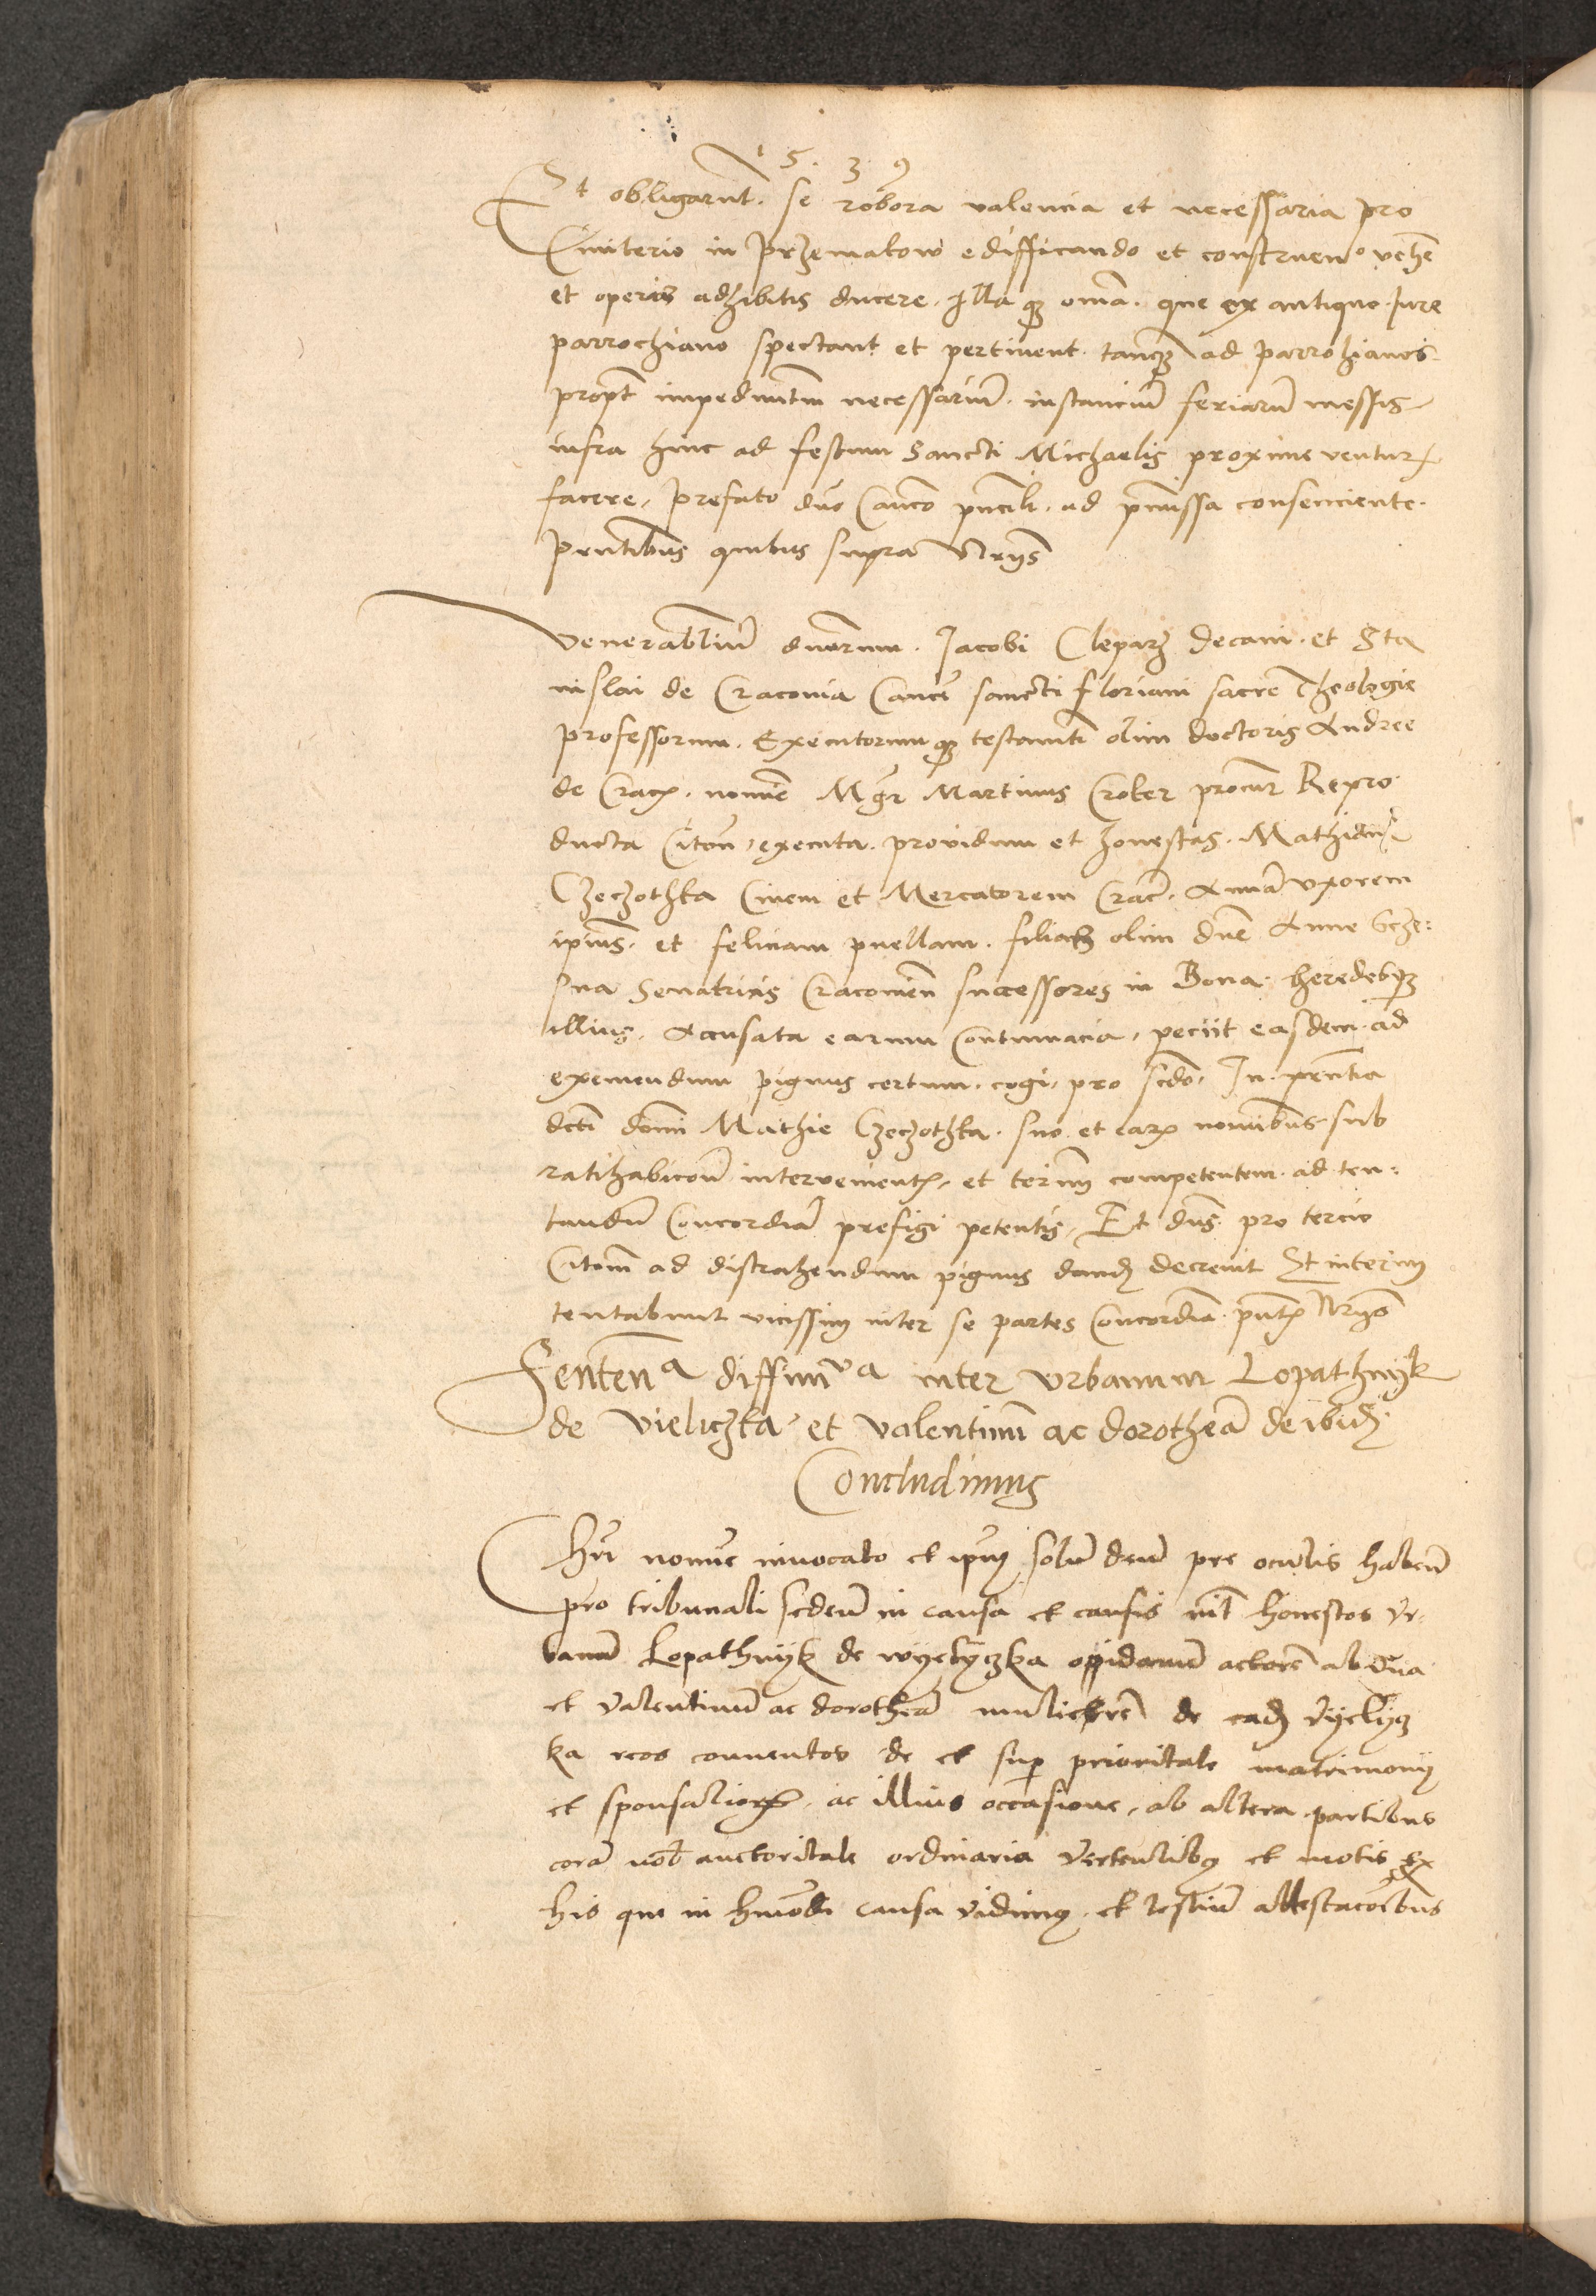 1 5 . 3 9
Et obligarunt . se robora valencia et necessaria pro
Cimiterio in Przemakow edifficando et construendo vehere
et operis adhibitis ducere . Illa qz omnia . que ex antiquo Jure
parrochiano spectant et pertinent tamqz ad parrochianos
propt impedimtm necessariu . instanciu feriaru messis
infra hinc ad festum Sancti Michaelis proxime ventur
facere , Prefato dno ad pmissa consenciente .
Pntibus quibus supra
Venerabiliu dnorum . Jacobi Cleparz Decani . et Sta
nislai de Craconia Sancti Floriani sacre Theologie
professorum . Executorum qz testamti olim doctoris Andree
de Crac . nomie Mgr Martinus procur Repro
ducta Citone executa . providum et honestas . Mathiam
Czeczothka Civem et Mercatorem Crac . Anna Uxorem
ipius . et felicem puellam . filiam olim dne Anne
Senatricis Craconien successores in Bona heredesqz
illius . Accusata earum Contumacia , peciit easdem ad
eximendum pignus certum . cogi , pro scdo , In prntia
dcti domi Mathie Czeczothka . suo et earu nomibus sub
ratihabicone intervenient , et termi competentem ad ten-
tandu Concordia prefigi petentis , Et dns pro tercio
Citom ad distrahendum pignus dand decrevit Et interim
tentabunt vicissim inter se partes Concordia . pntz
Sentena diffinva inter Urbanum Lopathnyk
de Vieliczka et Valentinu ac Dorothea de ibid
Concludimus
Chri nomie invocato et ipum solu deu pre oculis haben
pro tribunali seden in causa et causis int honestos Ur-
banu Lopathnyk de Wyelyczka oppidanum actore ab una
et Valentinu ac Dorothea muliere de ead Vyelycz
ka reos conventos de et sup prioritate matrimonii
et sponsaliorum . ac illius occasione , ab altera partibus
cora nob auctoritate ordinaria vertentibus et motis Ex
his que in hmodi causa vidimus . et testiu attestaconibus